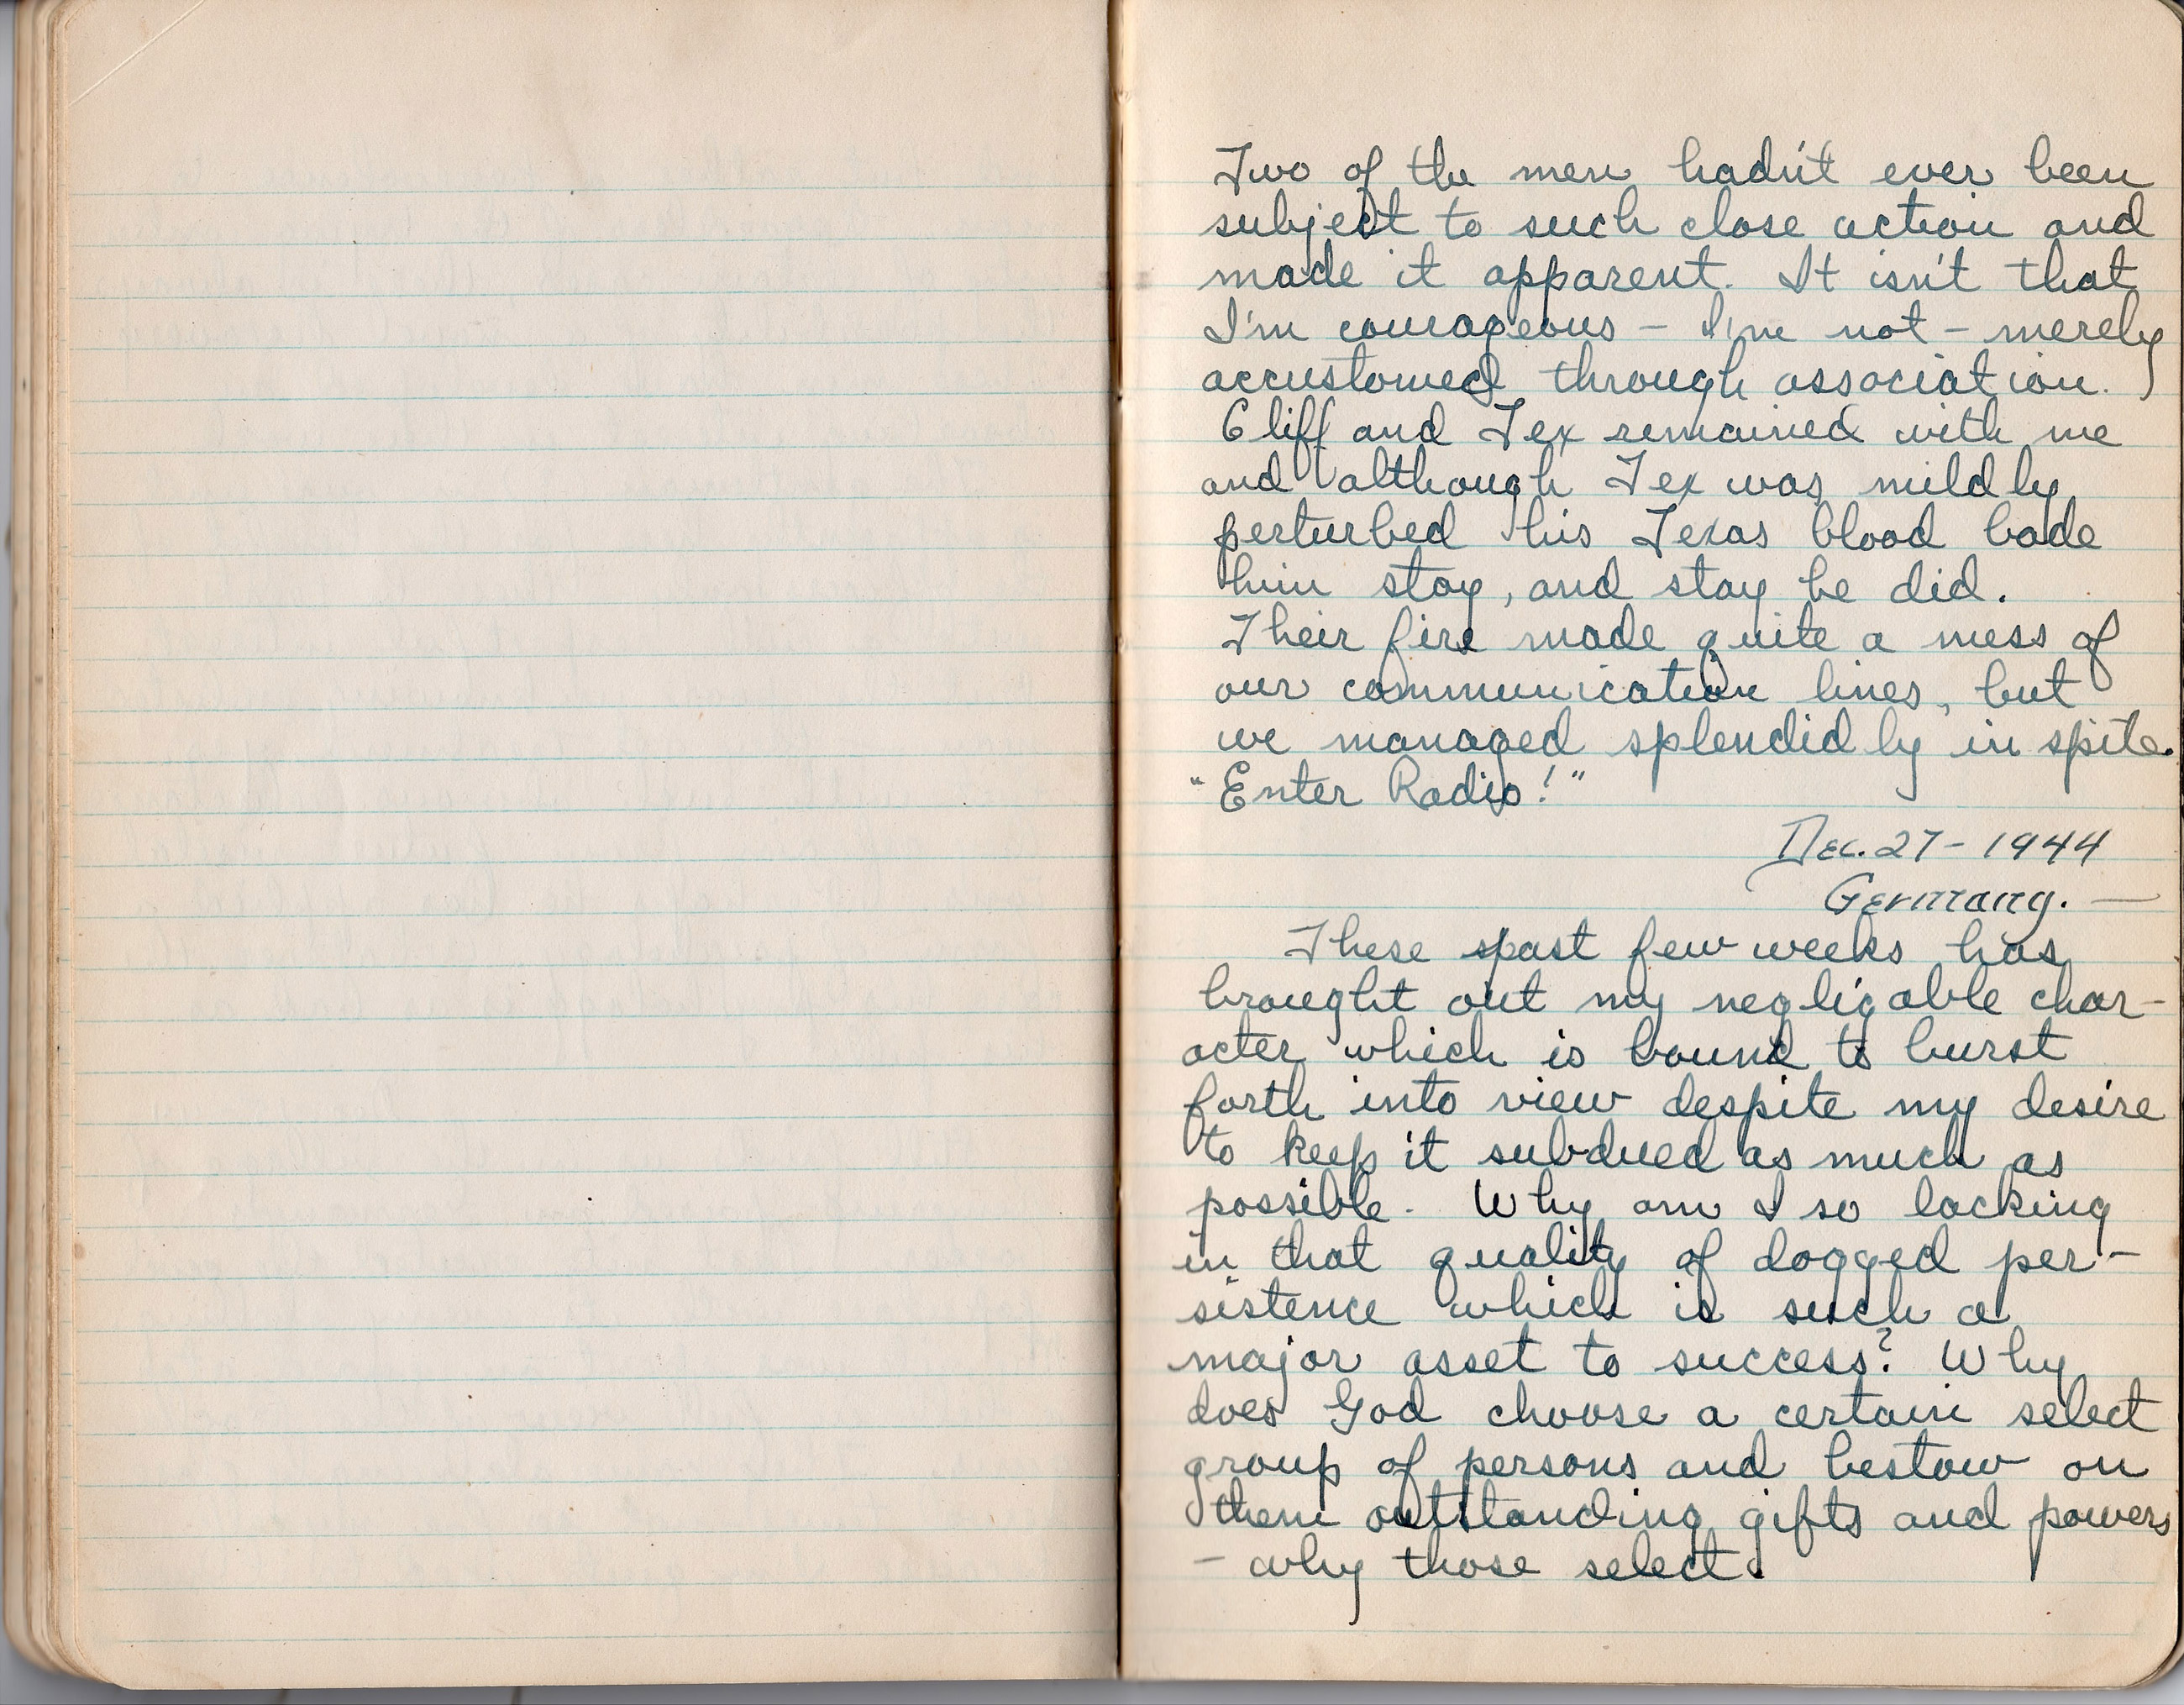 Two of the men hadn't ever been
subject to such close action and
made it apparent. It isn't that
I'm courageous – I'm not – merely
accustomed through association.
Cliff and Tex remained with me
and although Tex was mildly
perturbed his Texas blood bade
him stay, and stay he did.
Their fire made quite a mess of
our communication lines, but
we managed splendidly in spite.
"Enter Radio!"
Dec. 27 – 1944
Germany. —
These past few weeks has
brought out my negligable char-
acter which is bound to burst
forth into view despite my desire
to keep it subdued as much as
possible. Why am I so lacking
in that quality of dogged per-
sistence which is such a
major asset to success? Why
does God choose a certain select
group of persons and bestow on
them outstanding gifts and powers
– why those select.